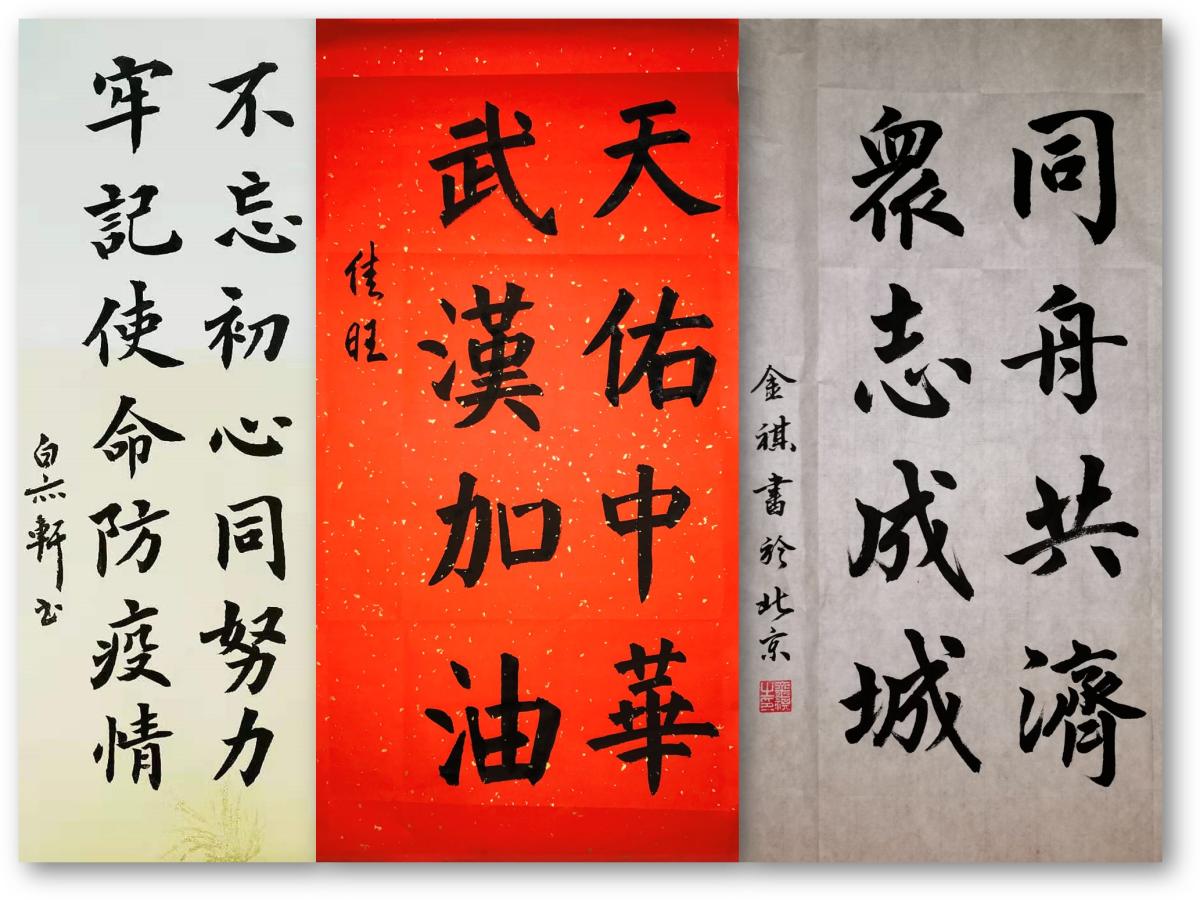 同舟共濟
衆志成城
金祺書於北京
天佑中華
武漢加油
佳旺
不忘初心同努力
牢記使命防疫情
白軒书